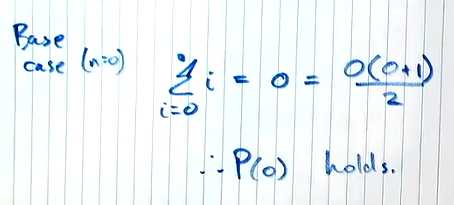 Base
case (n=0) ∑_{i=0} i = 0 = 0(0+1)/2
∴ P(0) holds.